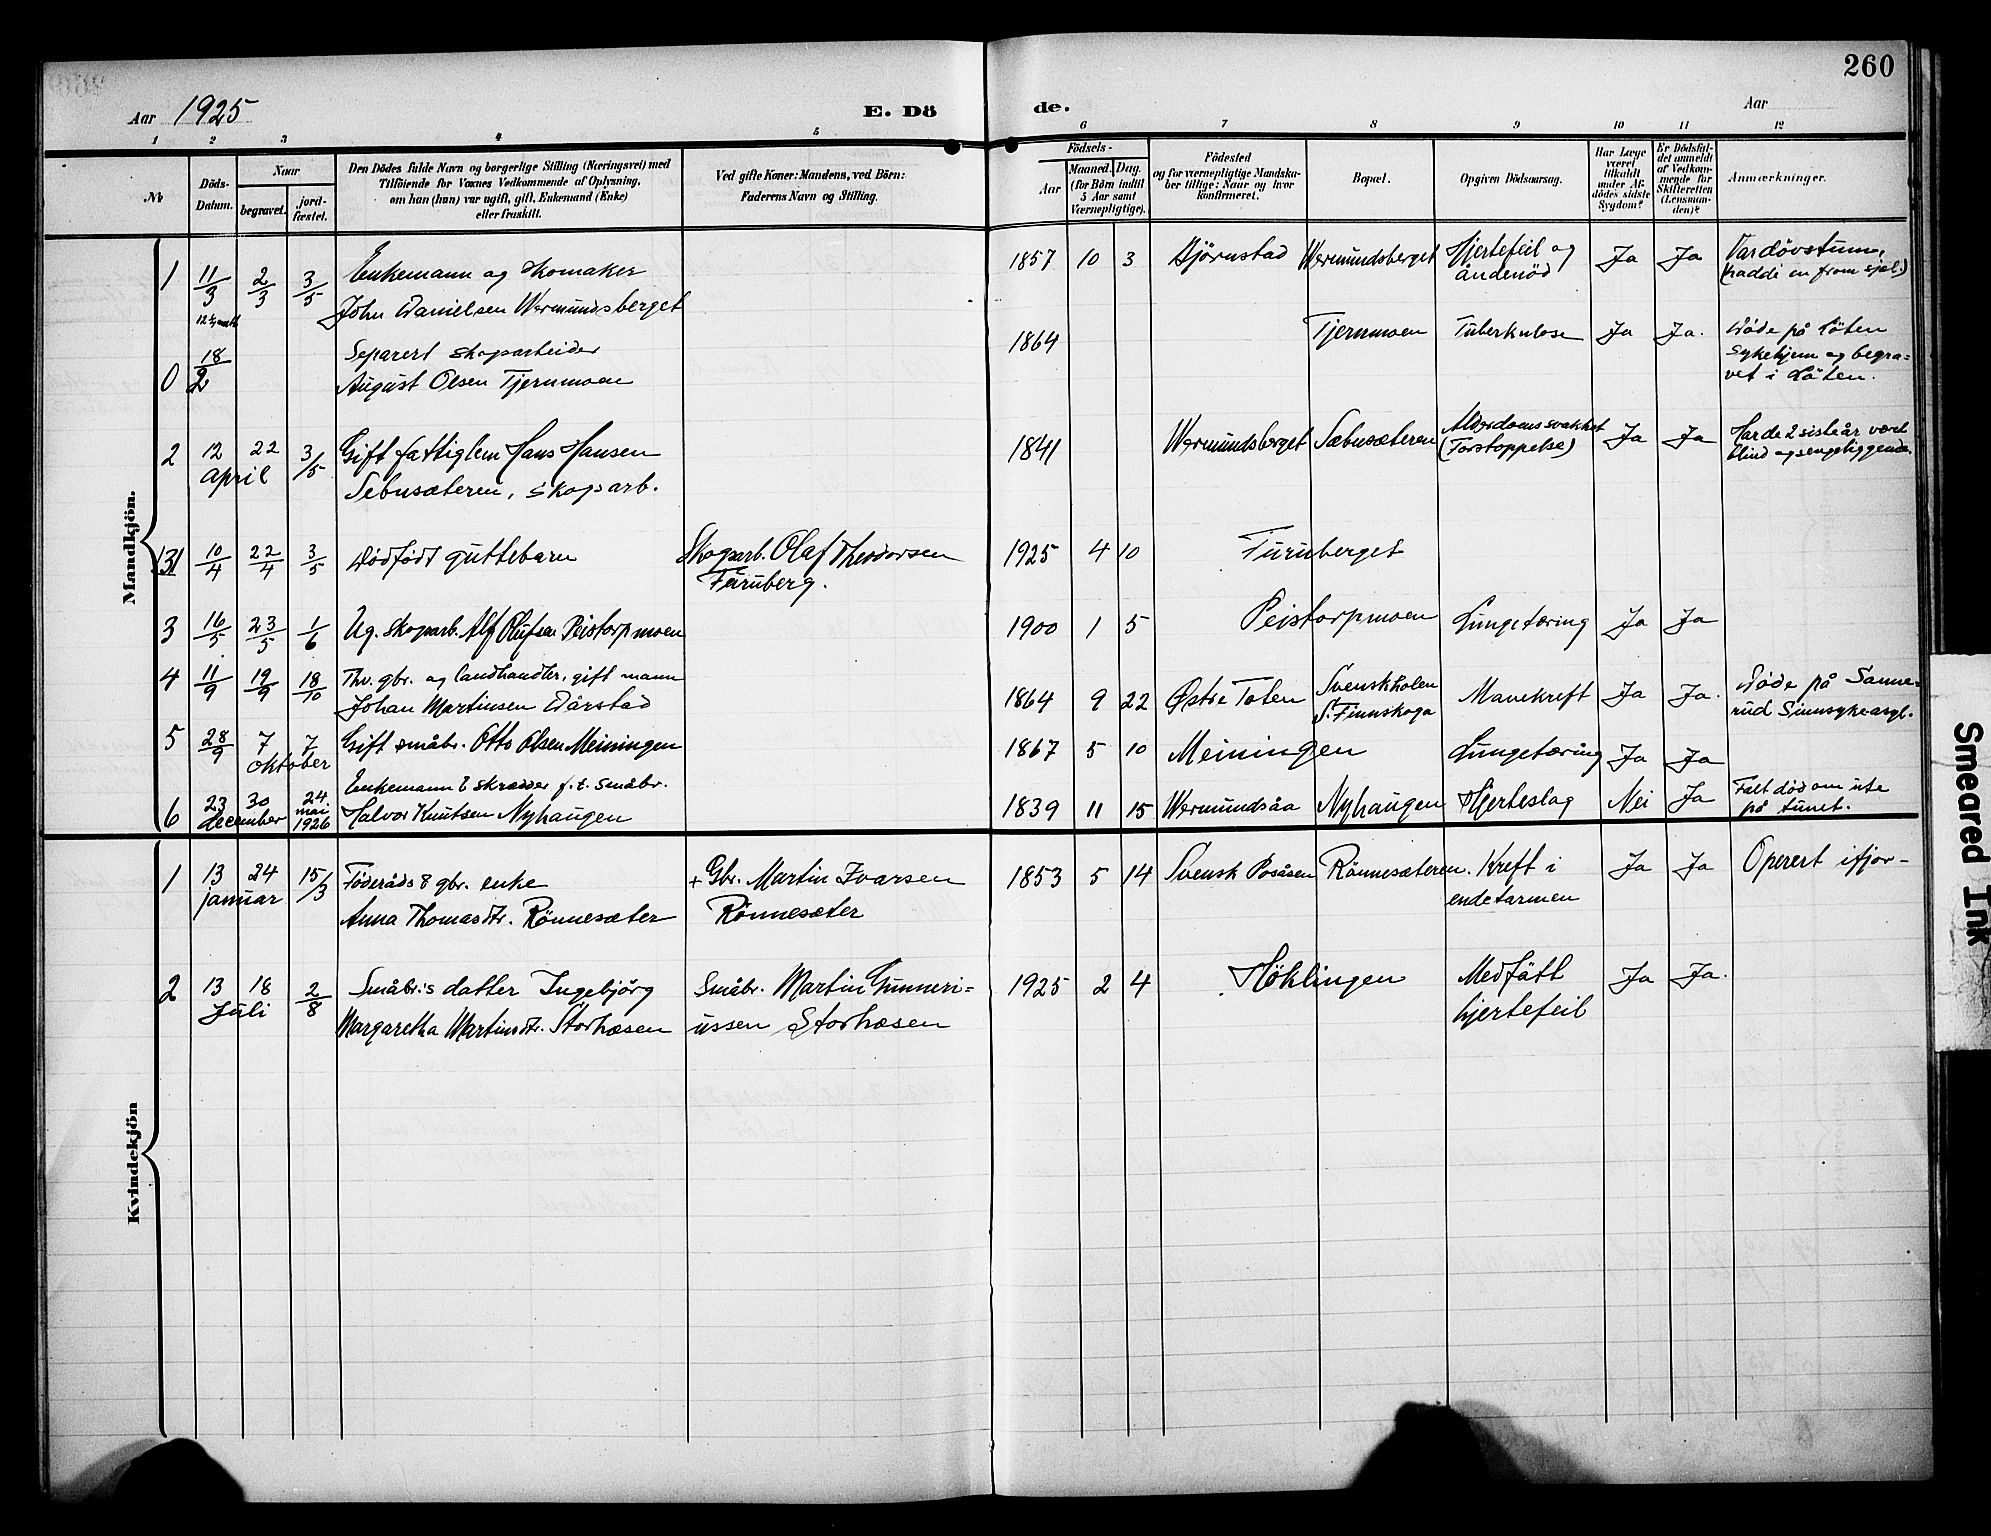 260
Aar 1925
E. Dö
de.
Aar
1 2 3 4 5 6 7 8 9 10 11 12
No
Döds-
Datum.
Naar
begravet.
jord-
fæstet.
Den Dödes fulde Navn og borgerlige Stilling (Næringsvei) med
Tilföiende for Voxnes Vedkommende af Oplysning,
om han (hun) var ugift, gift, Enkemand (Enke)
eller fraskilt.
Ved gifte Koner: Mandens, ved Börn:
Faderens Navn og Stilling.
Födsels-
Aar
Maaned.
Dag.
(for Börn indtil
5 Aar samt
Værnepligtige).
Födested
og for værnepligtige Mandska-
ber tillige: Naar og hvor
konfirmeret.
Bopæl.
Opgiven Dödsaarsag.
Har Læge
været
tilkaldt
under Af-
dödes sidste
Sygdom?
Er Dödsfal-
det anmeldt
af Vedkom-
mende for
Skifteretten
(Lensman-
den)?
Anmærkninger.
Mandkjön.
1 11/3 2/3 3/5 Enkemann og skomaker
John Danielsen Wermundsberget
1857 10 3 Björnstad Wermundsberget Hjertefeil og
åndenöd
Ja Ja Var dövstum,
(hadde en from sjel.)
0 18/2 Separert skogarbeider
August Olsen Tjernmoen
1864 Tjernmoen Tuberkulose Ja Ja. Döde på Löten
sykehjem og begra-
vet i Löten.
2 12 22 april 3/5 Gift fattiglem Hans Hansen
Sebusæteren, skogsarb.
1841 Wermundsberget Sæbusæteren Alderdomssvakhet
(Forstoppelse)
Ja Ja Har de 2 siste år vært
blind og sengeliggende.
10/4 22/4 3/5 Dödfödt guttebarn
Skogsarb. Olaf Theodorsen
Furuberg.
1925 4 10 Furuberget
3 16/5 23/5 1/6 Ug. skogsarb. Alf Olufsen Peistorpmoen
1900 1 5 Peistorpmoen Lungetæring Ja Ja
4 11/9 19/9 18/10 Thv. gbr. og landhandler, gift mann
Johan Martinsen Dårstad
1864 9 22 Østre Toten Svenskholen
S. Finnskoga
Mavekreft Ja Ja. Döde på Sanne-
rud Sinnsykeasyl.
5 28/9 7 7 oktober Gift småbr. Otto Olsen Meiningen
1867 5 10 Meiningen Lungetæring Ja Ja
6 23 30 december 24 mai 1926 Enkemann & skrædder f. t. småbr.
Halvor Knutsen Nyhaugen
1839 11 15 Wermundsåa Nyhaugen Hjerteslag Nei Ja Falt död om ute
på tunet.
Kvindekjön
1 13 24 januar 15/3 Föderåds & gbr. enke
Anna Thomasdtr. Rönnesæter
+ Gbr. Martin Ivarsen
Rönnesæter
1853 5 14 Svensk Posåsen Rönnesæteren. Kreft i
endetarmen
Ja Ja Operert ifjor-
2 13 18 Juli 2/8 Småbr.'s datter Ingebjörg
Margaretha Martinsdtr. Storhæsen
Småbr. Martin Gunneri-
ussen Storhæsen
1925 2 4 Höklingen Medfått
hjertefeil
Ja Ja.
Smeared Ink